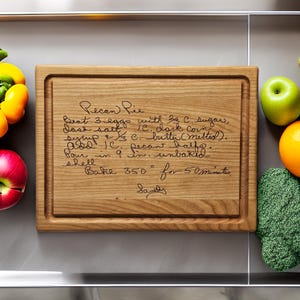 Pecan Pie
Beat 3 eggs with 2/3 C. sugar,
dash salt, 1C. dark corn
syrup & 1/3 C. butter (melted).
Add 1C. pecan halfs.
Pour in 9 in. unbaked
shell
Bake 350° for 50 minutes
Sandy